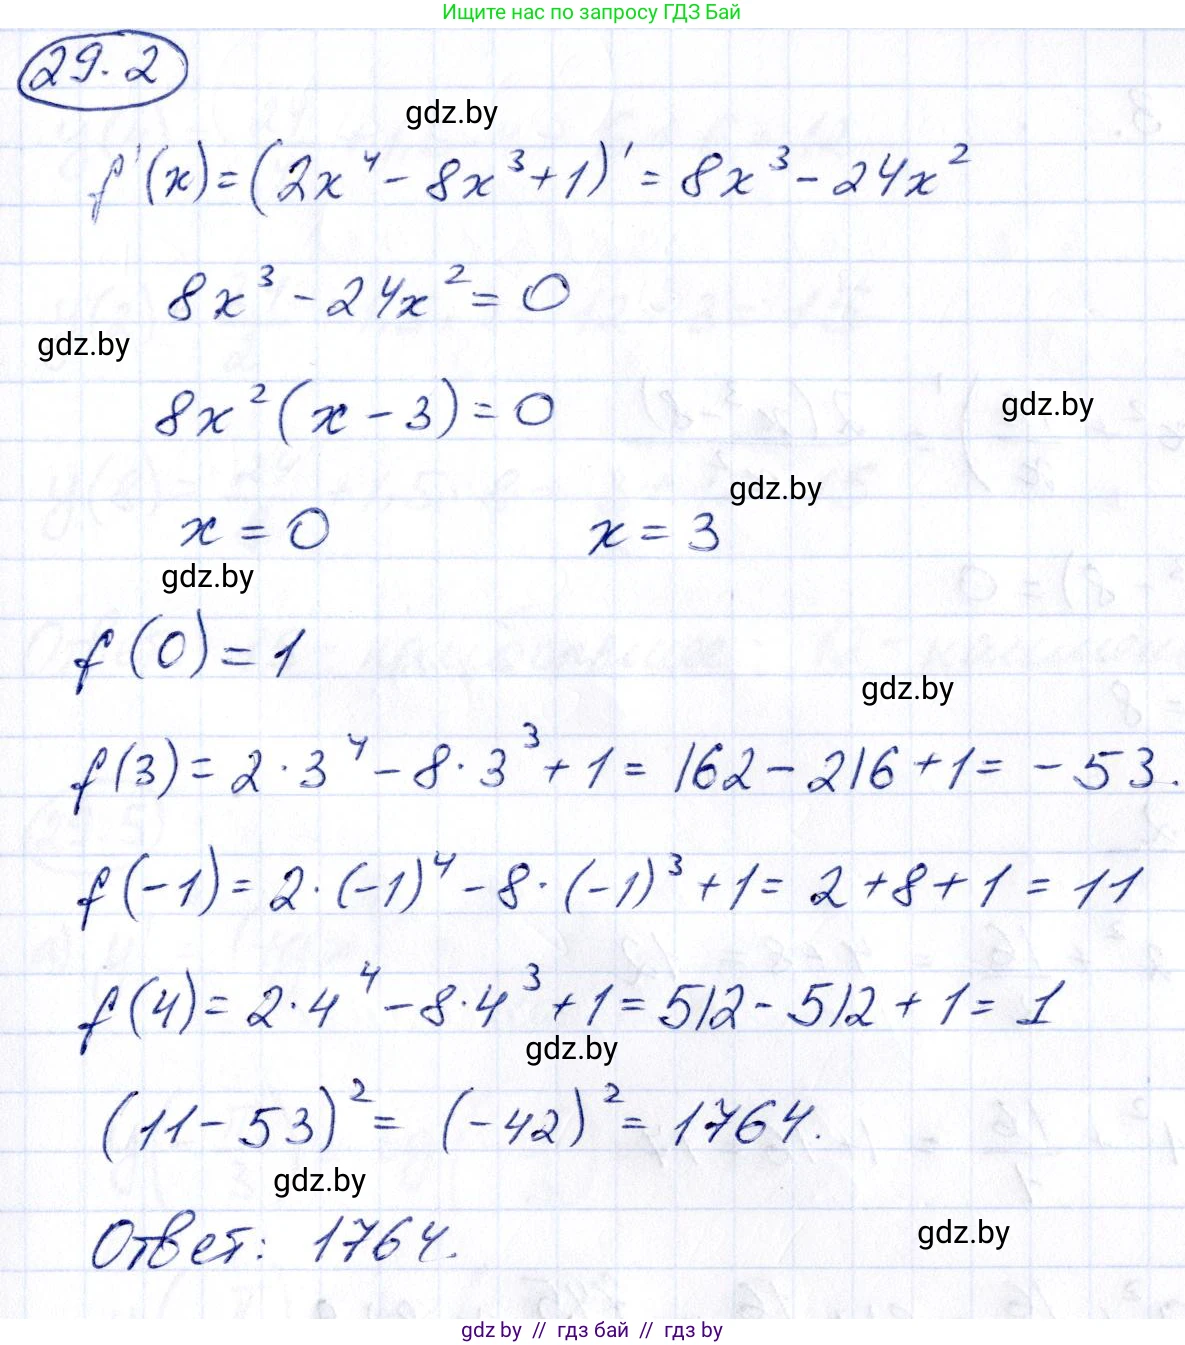 Ищите нас по запросу ГДЗ Бай
29.2
gdz.by
f'(x) = (2x⁴ - 8x³ + 1)' = 8x³ - 24x²
8x³ - 24x² = 0
gdz.by
8x²(x - 3) = 0
gdz.by
gdz.by
x = 0 x = 3
gdz.by
f(0) = 1
gdz.by
f(3) = 2·3⁴ - 8·3³ + 1 = 162 - 216 + 1 = -53.
f(-1) = 2·(-1)⁴ - 8·(-1)³ + 1 = 2 + 8 + 1 = 11
f(4) = 2·4⁴ - 8·4³ + 1 = 512 - 512 + 1 = 1
gdz.by
(11 - 53)² = (-42)² = 1764.
gdz.by
Ответ: 1764.
gdz.by
gdz by // гдз бай // гдз by